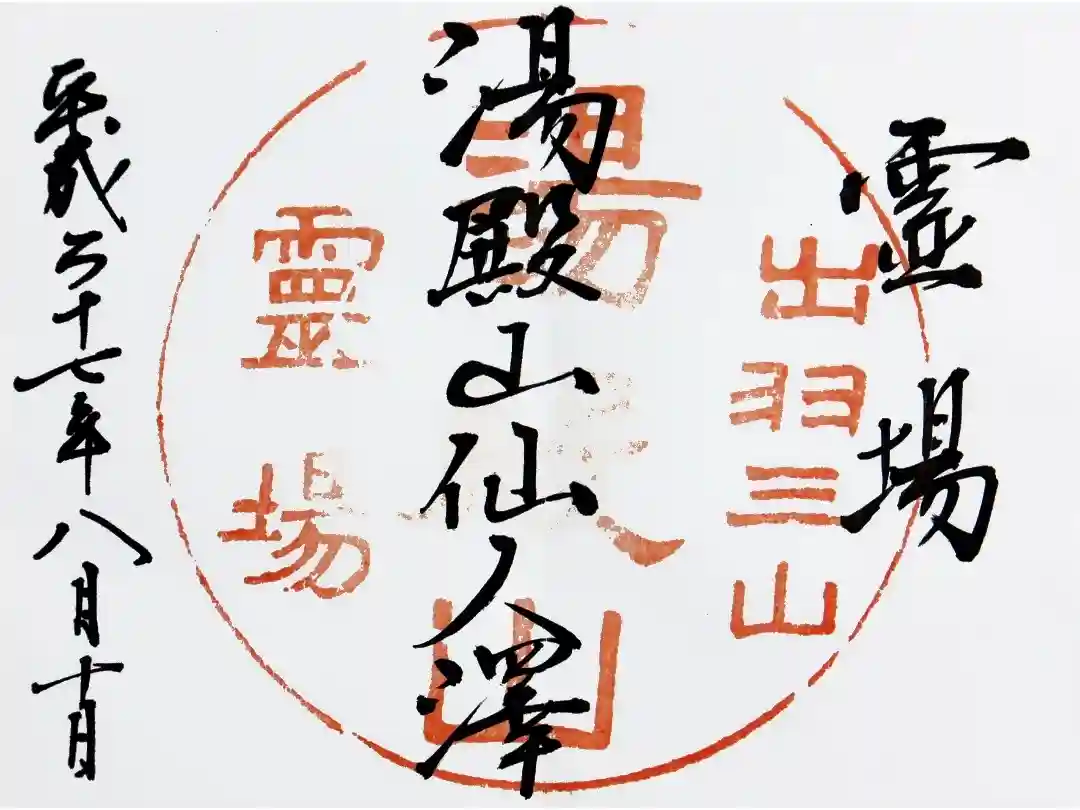 霊場
出羽三山
湯殿山仙ノ澤
湯殿山
靈場
平成二十七年八月十日